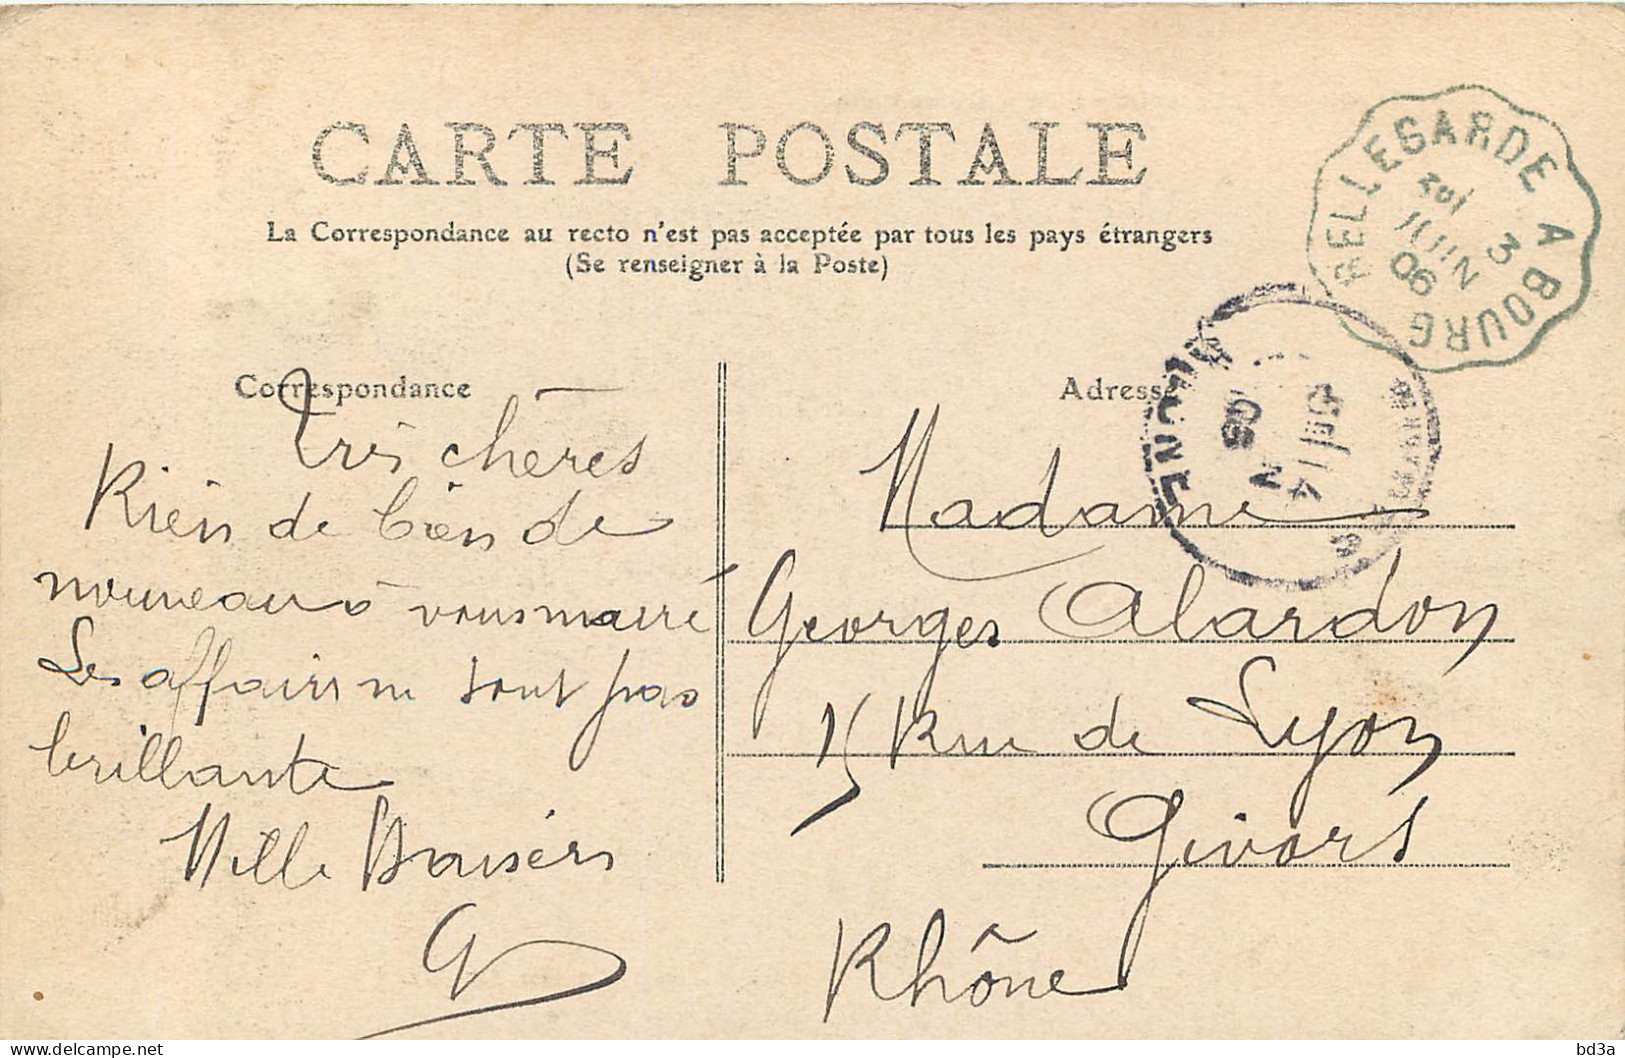 CARTE POSTALE
La Correspondance au recto n'est pas acceptée par tous les pays étrangers
(Se renseigner à la Poste)
BELLEGARDE A BOURG
3
JUIN
06
Correspondance
Très chères
Rien de bien de
nouveau à vous
Les affaires ne sont pas
brillante
Mille Baisers
G
Adresse
Madame
Georges Alardon
15 Rue de Lyon
Givors
Rhône
bd3a